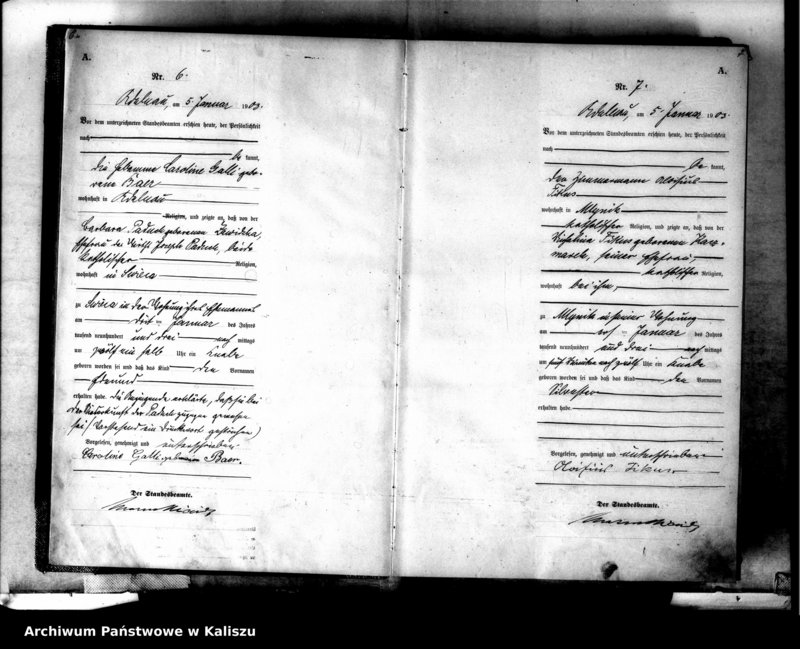 6.
A.
Nr. 6.
Adelnau, am 5. Januar 1903.
Vor dem unterzeichneten Standesbeamten erschien heute, der Persönlichkeit
nach
be kannt,
die Hebamme Caroline Galli gebo-
rene Baer
wohnhaft in Adelnau
Religion, und zeigte an, daß von der
Barbara Paduch geborenen
Ehefrau des Wirths Joseph Paduch, beide
katholischer Religion,
wohnhaft in Swieca
zu Swieca in der Wohnung ihres Ehemannes
am drit ten Januar des Jahres
tausend neunhundert und drei nach mittags
um zwölf ein halb Uhr ein Knabe
geboren worden sei und daß das Kind den Vornamen
Edmund
erhalten habe. Die Anzeigende erklärte, daß sie bei
der Niederkunft der Paduch zugegen gewesen
sei/ (Vorstehend ein Druckwort gestrichen)
Vorgelesen, genehmigt und unterschrieben
Caroline Galli geborene Baer.
Der Standesbeamte.
A.
Nr. 7.
Adelnau, am 5. Januar 1903.
Vor dem unterzeichneten Standesbeamten erschien heute, der Persönlichkeit
nach
be kannt,
der Zimmermann Aloisius
Fikus
wohnhaft in Mlynik
katholischer Religion, und zeigte an, daß von der
Fikus geborenen
seiner Ehefrau,
katholischer Religion,
wohnhaft bei ihm,
zu Mlynik in seiner Wohnung
am Januar des Jahres
tausend neunhundert und drei nach mittags
um fünf Minuten nach zwölf Uhr ein Knabe
geboren worden sei und daß das Kind den Vornamen
Silvester
erhalten habe.
Vorgelesen, genehmigt und unterschrieben
Fikus
Der Standesbeamte.
Archiwum Państwowe w Kaliszu